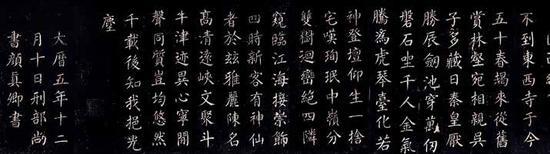 不到東西寺于今
五十春朅來從舊
賞林壑宛相親吳
子多藏日秦皇厭
勝辰劍池穿万仞
磐石坐千人金氣
騰為虎琴臺化若
神登壇仰生一捨
宅嘆珣珉中嶺分
雙樹迴巒絕四隣
窺臨江海接崇飾
四時新客有神仙
者於兹雅麗陳名
高清遠峽文聚斗
牛津迹異心寧間
聲同質豈均悠然
千載後知我挹光
塵
大曆五年十二
月十日刑部尚
書顏真卿書